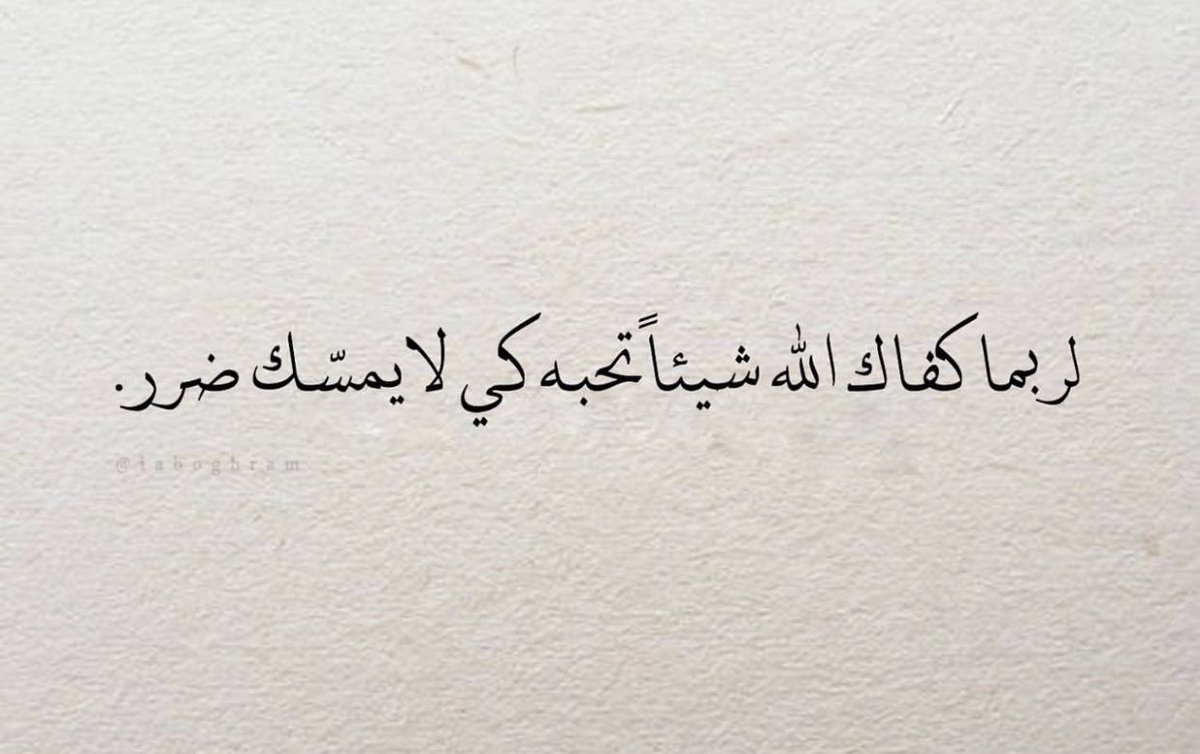 لربما كفاك الله شيئاً تحبه كي لا يمسّك ضرر.
@iaboghram